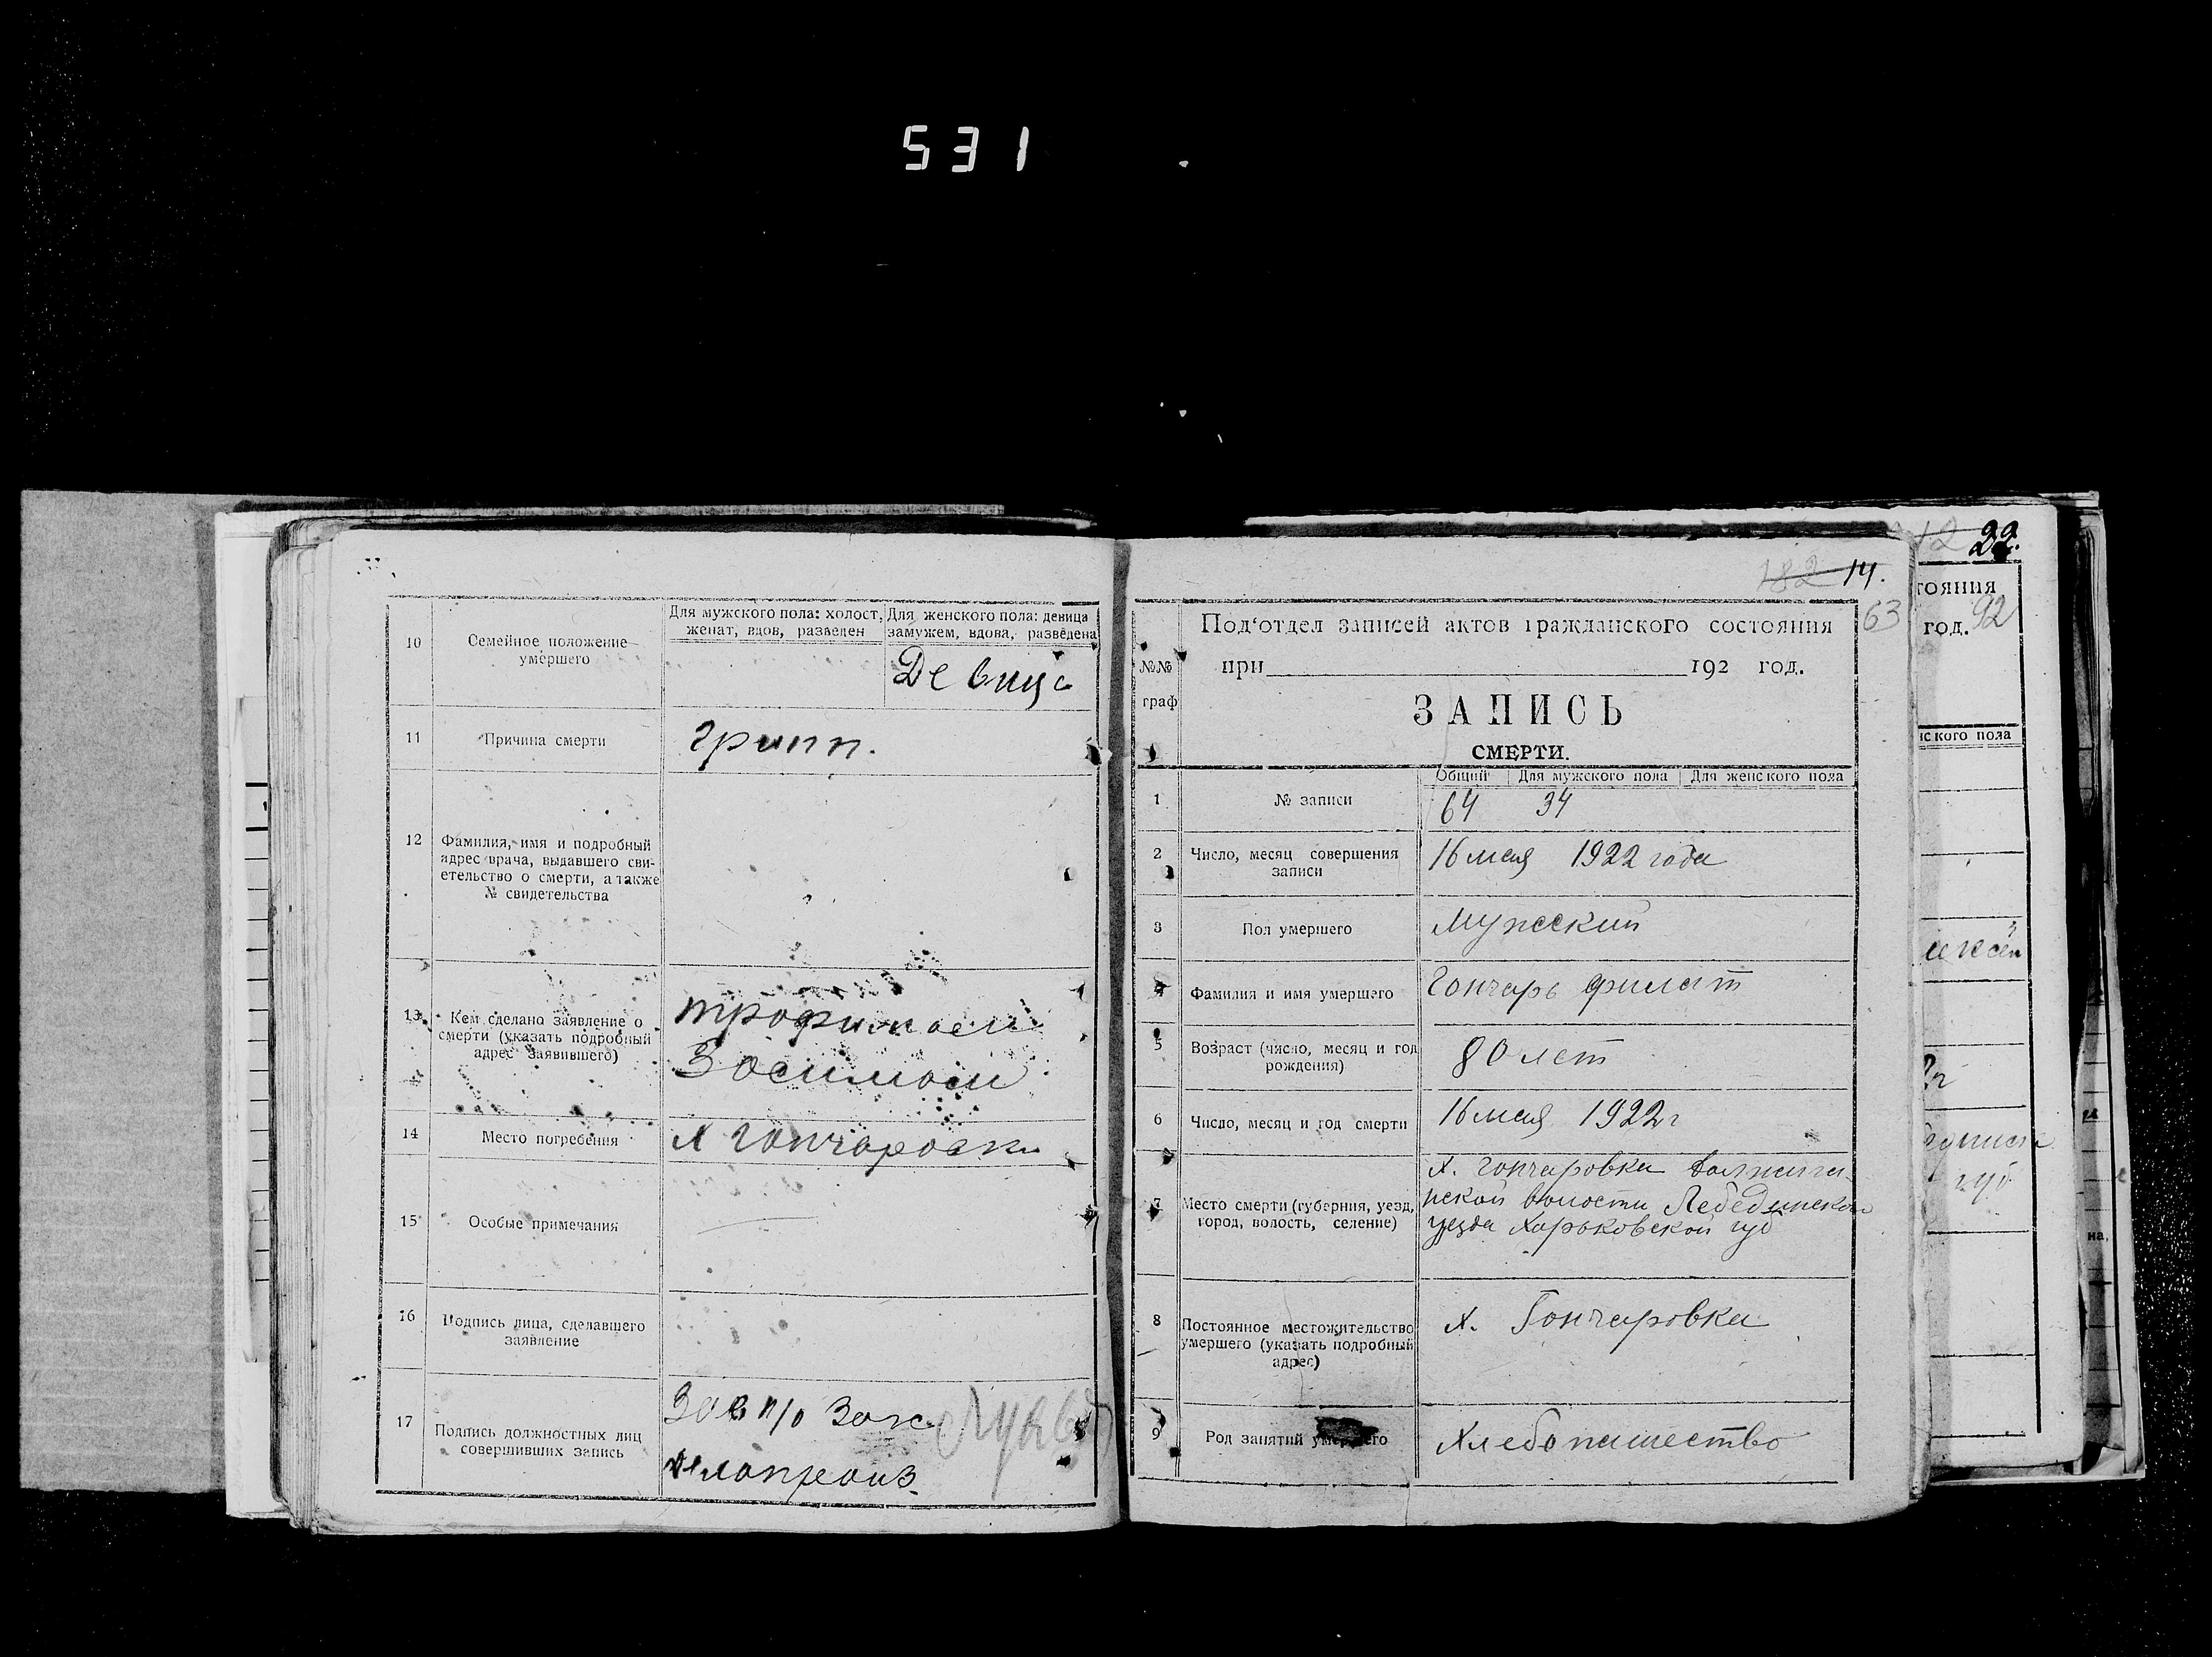 531
10
Семейное положение
умершего
Для мужского пола: холост,
женат, вдов, разведен
Для женского пола: девица
замужем, вдова, разведена
Девица
11
Причина смерти
грипп.
12
Фамилия, имя и подробный
адрес врача, выдавшего сви-
етельство о смерти, а также
№ свидетельства
13
Кем сделано заявление о
смерти (указать подробный
адрес заявившего)
14
Место погребения
х Гончаровка
15
Особые примечания
16
Подпись лица, сделавшего
заявление
17
Подпись должностных лиц
совершивших запись
Зав п/о Загс
Делопроиз.
182 14.
63
№№
граф
Под‘отдел записей актов гражданского состояния
при 192 год.
ЗАПИСЬ
СМЕРТИ.
Общий Для мужского пола Для женского пола
1
№ записи
64 34
2
Число, месяц совершения
записи
16 мая 1922 года
3
Пол умершего
Мужский
4
Фамилия и имя умершего
Гончарь Филат
5
Возраст (число, месяц и год
рождения)
80 лет
6
Число, месяц и год смерти
16 мая 1922 г
7
Место смерти (губерния, уезд,
город, волость, селение)
х. Гончаровка
нской волости Лебединскаго
уезда Харьковской губ
8
Постоянное местожительство
умершего (указать подробный
адрес)
х. Гончаровка
9
Род занятий умершего
Хлебопашество
12 22.
тояния
год. 92
нского пола